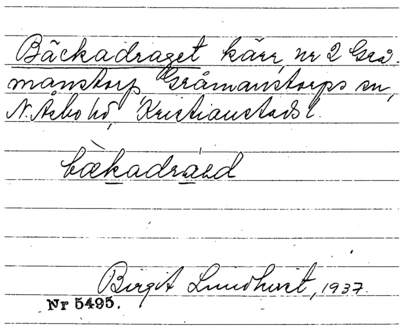 Bäckadraget kärr, nr 2 Grå-
manstorp Gråmanstorps sn,
N. Åsbo hd, Kristianstads l.
bækadráəd
Birgit Lundhvist, 1937.
Nr 5495.